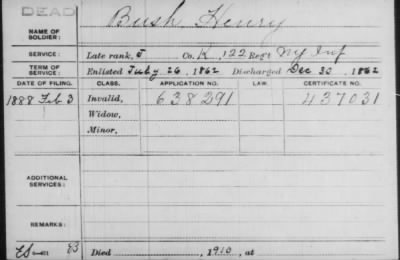 DEAD
NAME OF SOLDIER: Bush, Henry
SERVICE: Late rank, Co. K, 122 Reg't NY Inf
TERM OF SERVICE: Enlisted July 26, 1862 Discharged Dec 30, 1862
DATE OF FILING. CLASS. APPLICATION NO. LAW. CERTIFICATE NO.
1888 Feb 3 Invalid, 638291 437031
Widow,
Minor,
ADDITIONAL SERVICES:
REMARKS:
Died, 1910, at